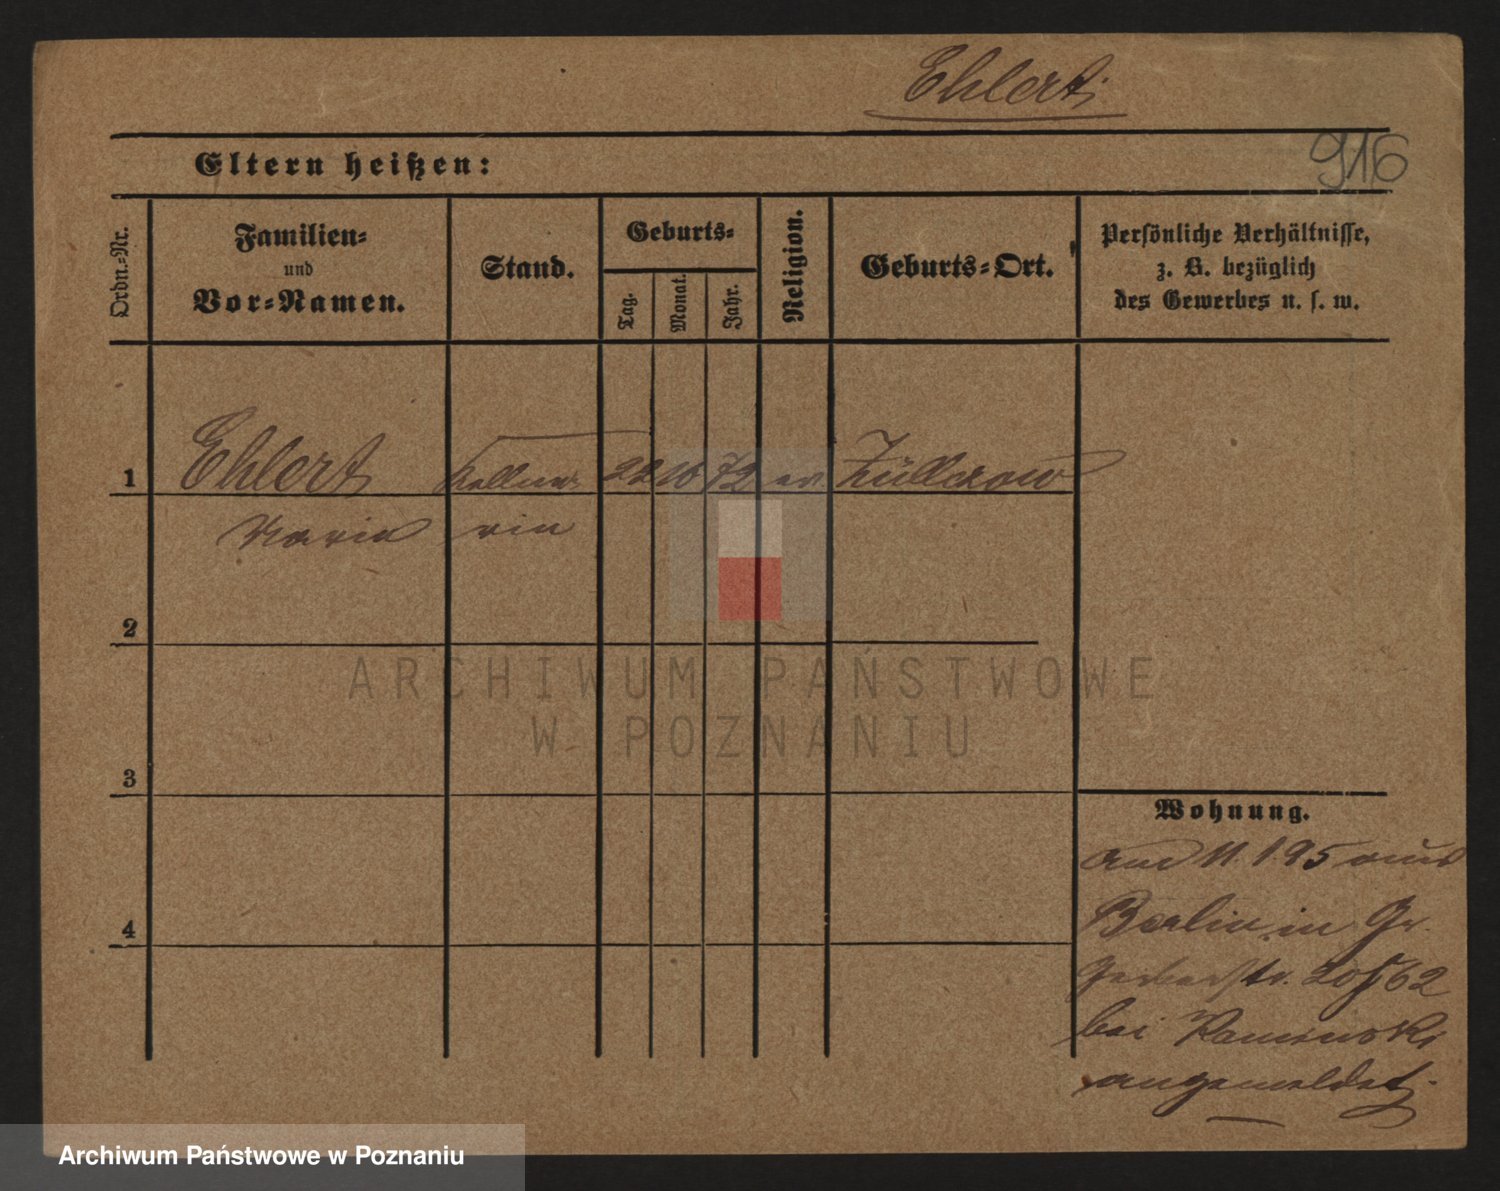 Ehlert.
916
Eltern heißen:
Ordn.-Nr.
Familien-
und
Vor-Namen.
Stand.
Geburts-
Tag.
Monat.
Jahr.
Religion.
Geburts-Ort.
Persönliche Verhältnisse,
z. B. bezüglich
des Gewerbes u. s. w.
1
Ehlert Kellne- 22 10 72 ev Züllchow
Marie rin
2
ARCHIWUM PAŃSTWOWE
W POZNANIU
3
Wohnung.
4
11. 1 95 aus
Berlin in Gr.
Gerberstr. 62
bei Kaminski
angemeldet.
Archiwum Państwowe w Poznaniu